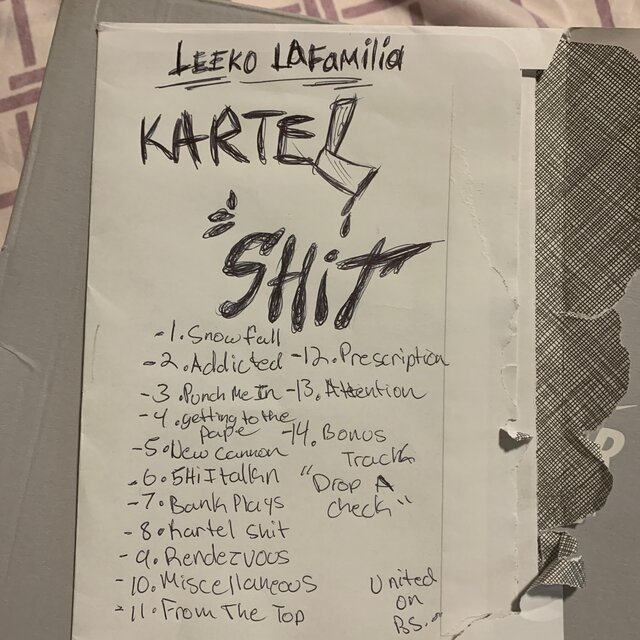 LEEKO LAFamilia
KARTEL
SHiT
-1. Snowfall
-2. Addicted
-3. Punch Me In
-4. getting to the
pape
-5. New cannon
-6. SHiTtalkn
-7. Bank Plays
-8. Kartel Shit
-9. Rendezvous
-10. Miscellaneous
-11. From The Top
-12. Prescription
-13. Attention
-14. Bonus
Track
"Drop A
check"
United
on
BS.